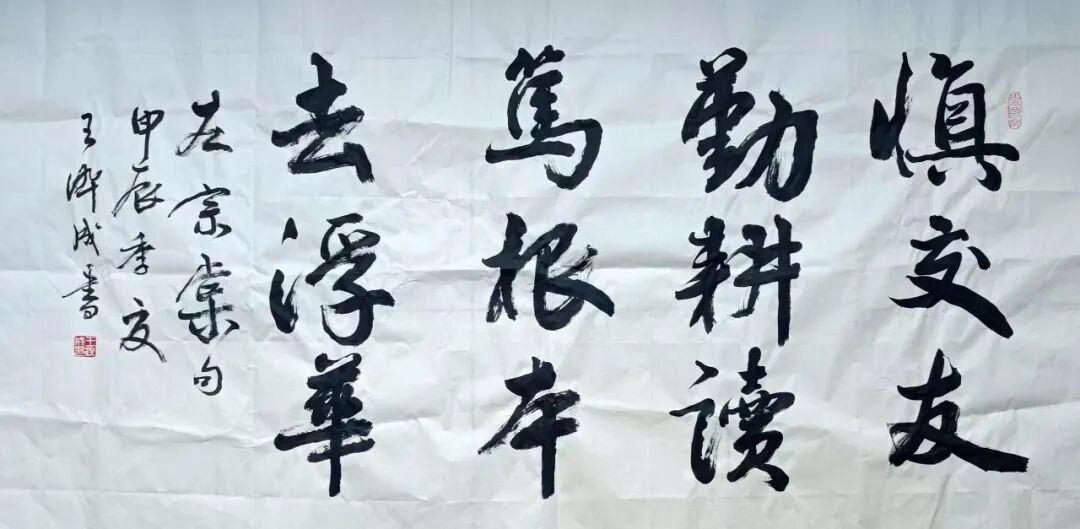 慎交友
勤耕讀
篤根本
去浮華
左宗棠句
申辰季夏
王晔成書